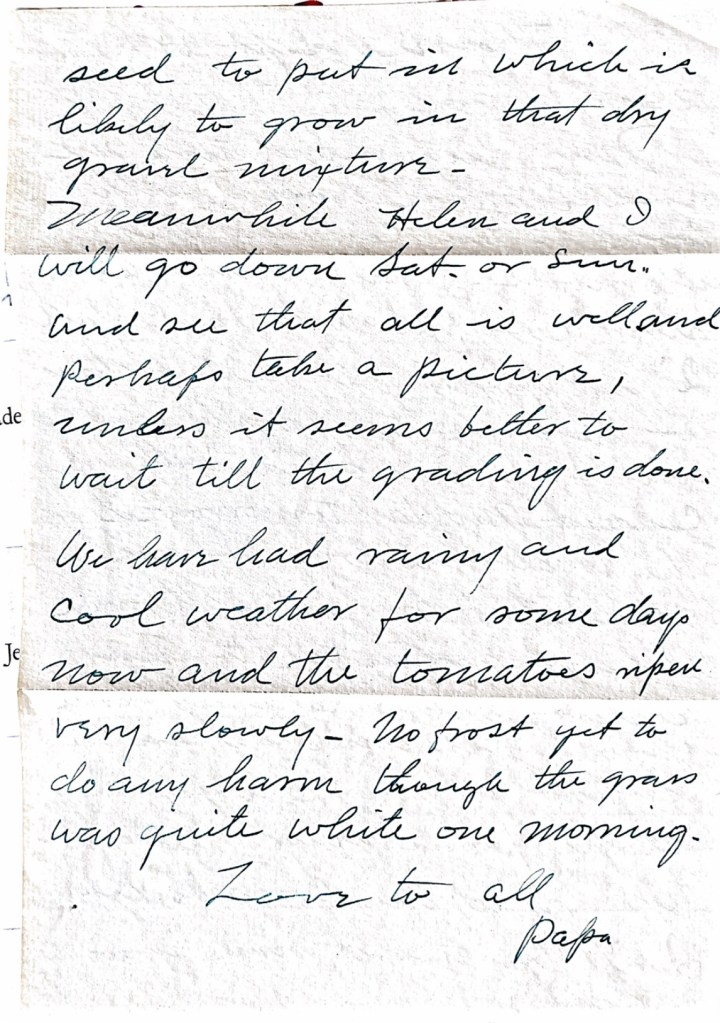 seed to put in which is
likely to grow in that dry
gravel mixture -
Meanwhile Helen and I
will go down Sat. or Sun..
and see that all is well and
perhaps take a picture,
unless it seems better to
wait till the grading is done.
We have had rainy and
cool weather for some days
now and the tomatoes ripen
very slowly - No frost yet to
do any harm though the grass
was quite white one morning.
Love to all
Papa
de
Je